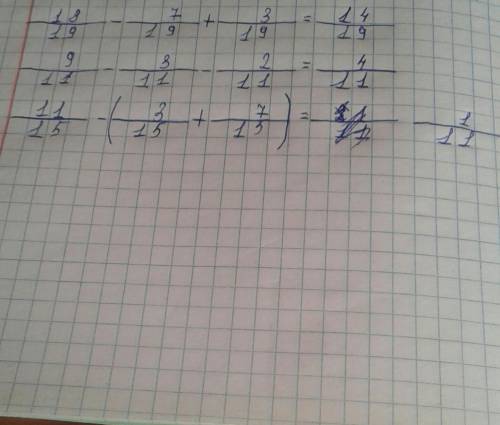 18/19 - 7/19 + 3/19 = 14/19
9/11 - 3/11 - 2/11 = 4/11
11/15 - (3/15 + 7/15) = 1/11